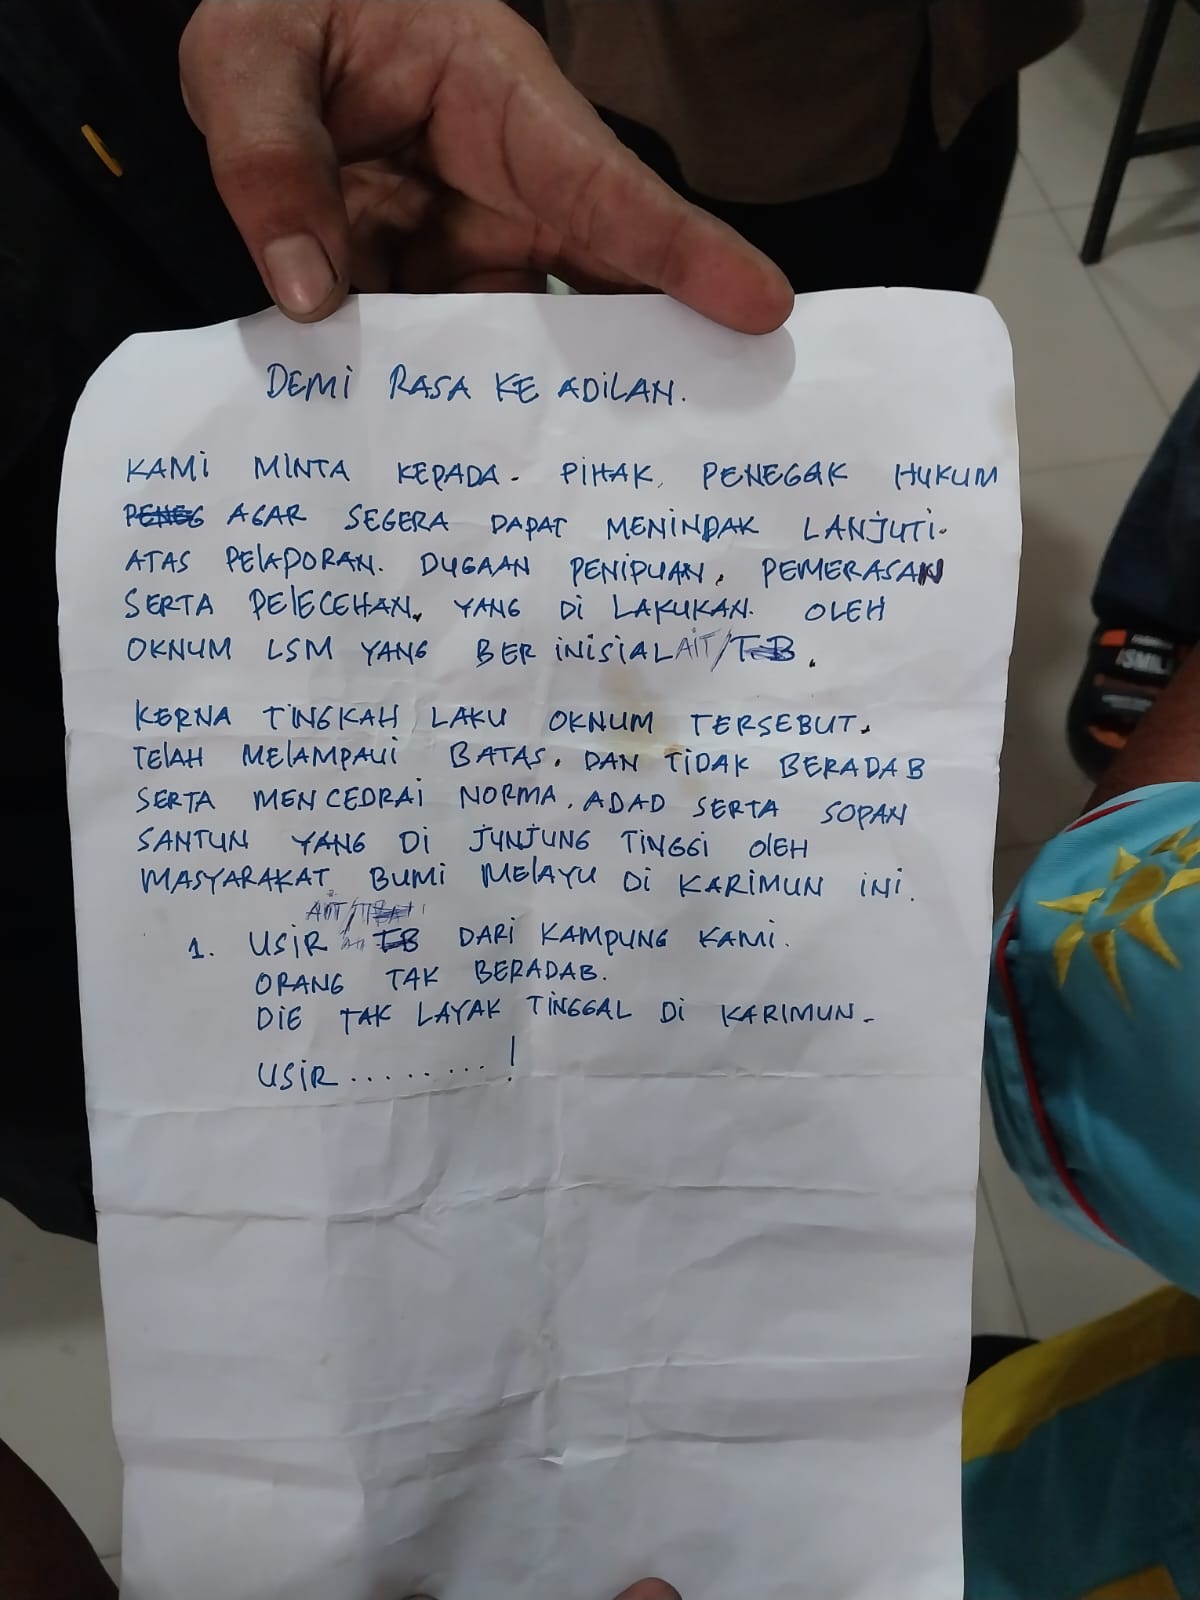 DEMI RASA KE ADILAN.
KAMI MINTA KEPADA. PIHAK. PENEGAK HUKUM
PENEG AGAR SEGERA DAPAT MENINDAK LANJUTI.
ATAS PELAPORAN. DUGAAN PENIPUAN. PEMERASAN
SERTA PELECEHAN. YANG DI LAKUKAN. OLEH
OKNUM LSM YANG BER INISIAL AIT/TB.
KERNA TINGKAH LAKU OKNUM TERSEBUT.
TELAH MELAMPAUI BATAS. DAN TIDAK BERADAB
SERTA MENCEDRAI NORMA. ADAD SERTA SOPAN
SANTUN YANG DI JUNJUNG TINGGI OLEH
MASYARAKAT BUMI MELAYU DI KARIMUN INI.
1. USIR TB DARI KAMPUNG KAMI.
ORANG TAK BERADAB.
DIE TAK LAYAK TINGGAL DI KARIMUN.
USIR.........!